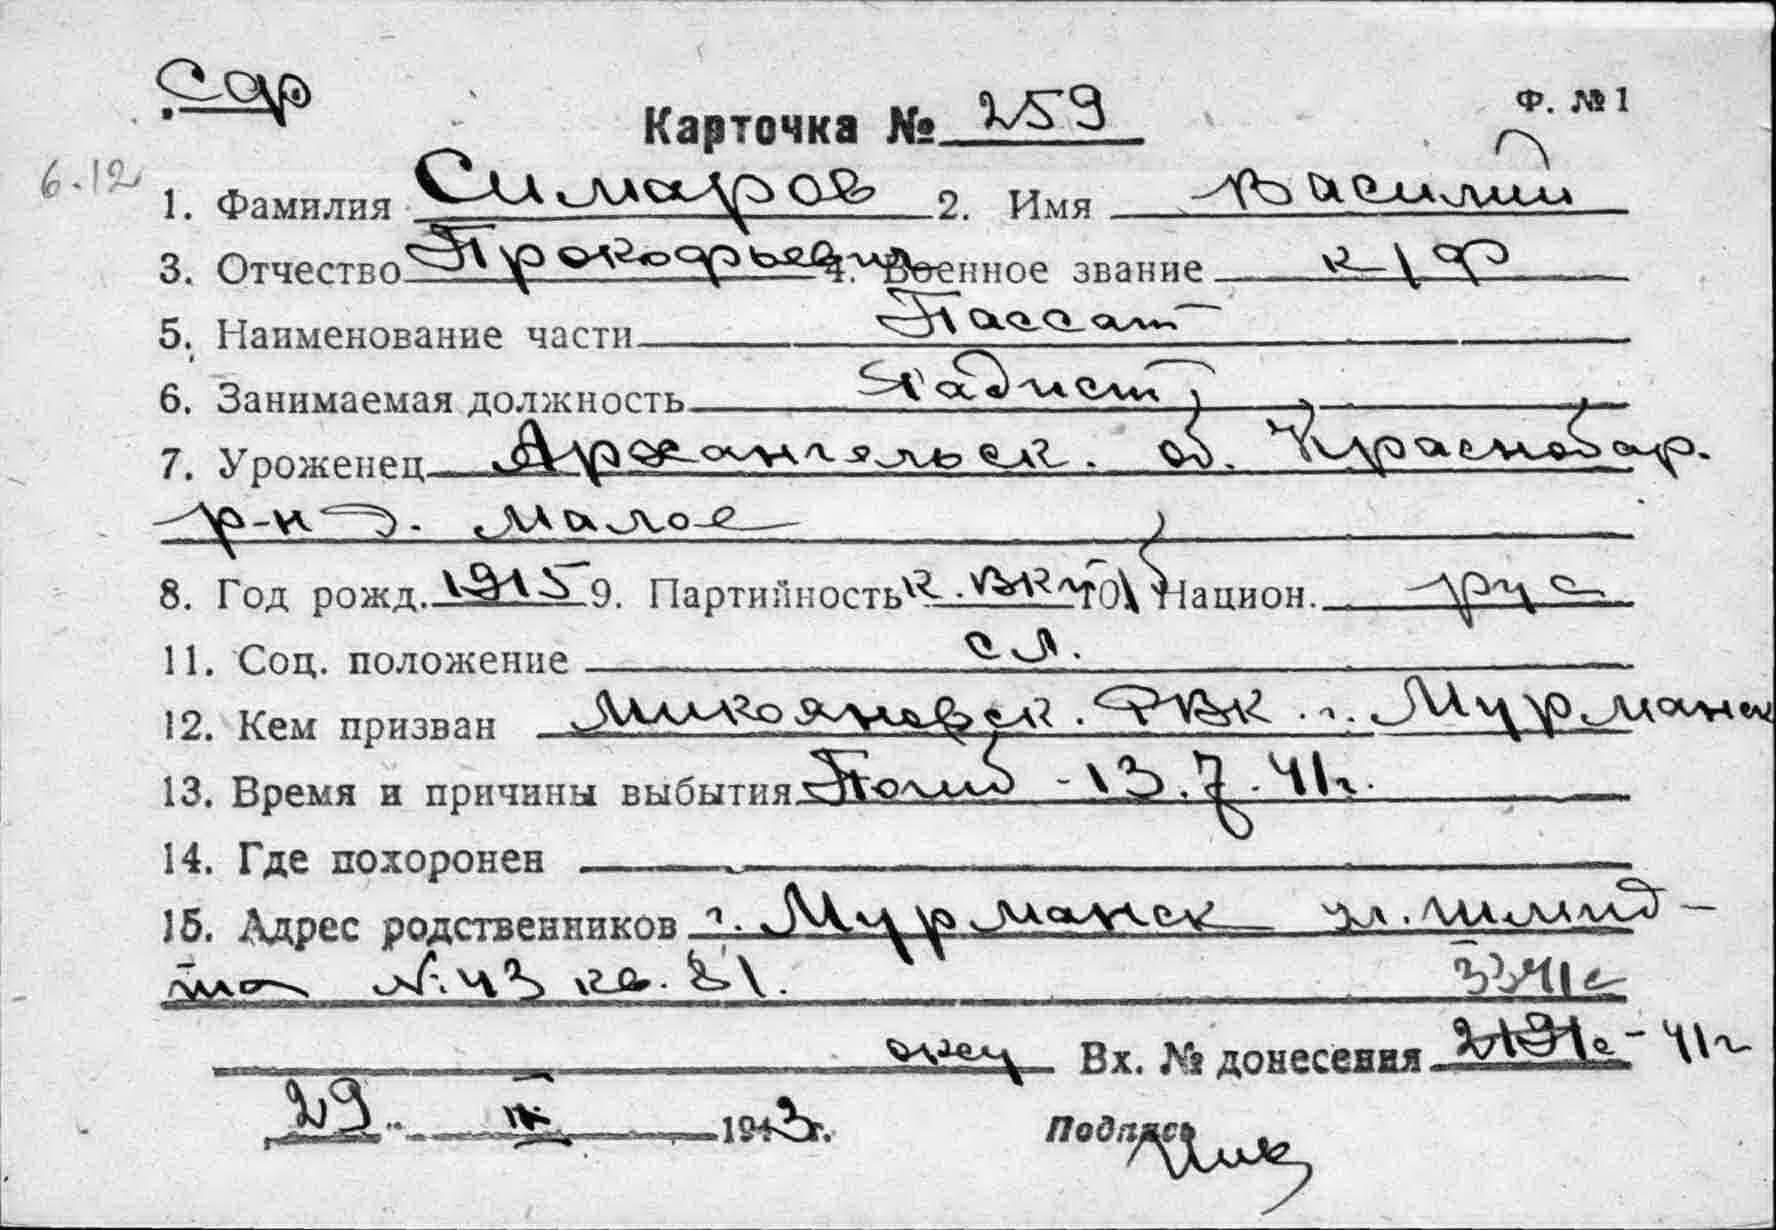 Сдр
Карточка № 259
Ф. № 1
6.12
1. Фамилия Симаров 2. Имя Василий
3. Отчество Прокофьевич 4. Военное звание к/ф
5. Наименование части Пассат
6. Занимаемая должность Радист
7. Уроженец Архангельск. об. Краснобар.
р-н д. Малое
8. Год рожд. 1915 9. Партийность к. ВКП 10. Национ. рус
11. Соц. положение сл.
12. Кем призван Микояновск. РВК. г. Мурманск
13. Время и причины выбытия Погиб - 13.7.41г.
14. Где похоронен
15. Адрес родственников г. Мурманск ул. Шмид-
та №. 43 кв. 81.
Вх. № донесения 2191с - 41г
29 1943г.
Подпись